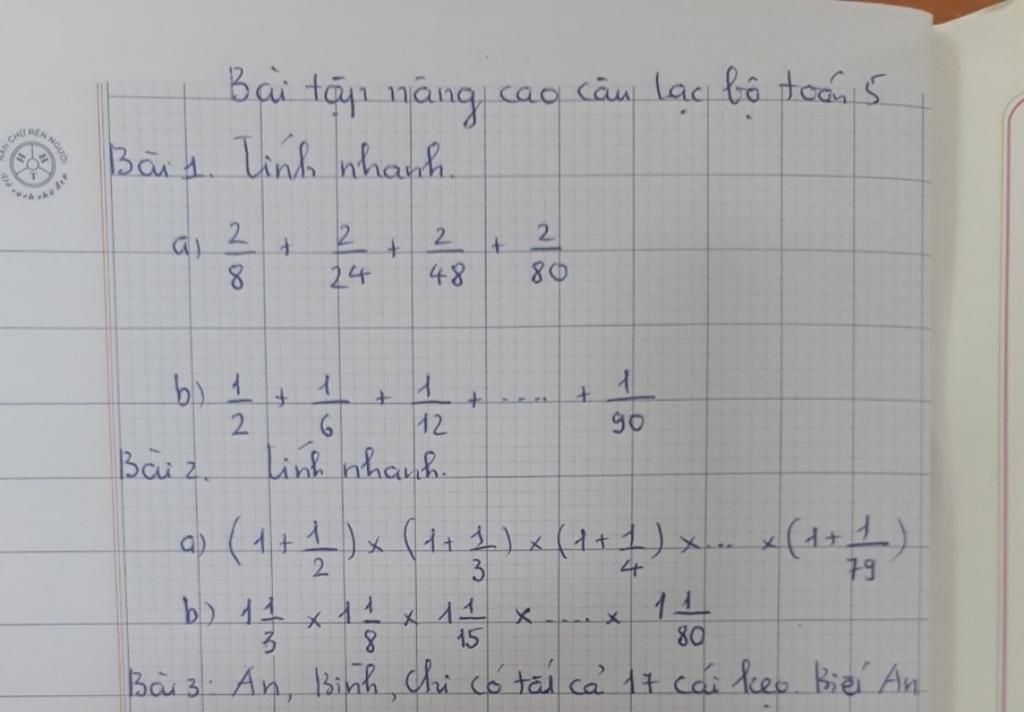 Bài tập nâng cao câu lạc bộ toán 5
Bài 1. Tính nhanh.
a) 2/8 + 2/24 + 2/48 + 2/80
b) 1/2 + 1/6 + 1/12 + .... + 1/90
Bài 2. Tính nhanh.
a) (1 + 1/2) × (1 + 1/3) × (1 + 1/4) × ... × (1 + 1/79)
b) 1 1/3 × 1 1/8 × 1 1/15 × .... × 1 1/80
Bài 3: An, Bình, Chi có tất cả 17 cái kẹo. Biết An